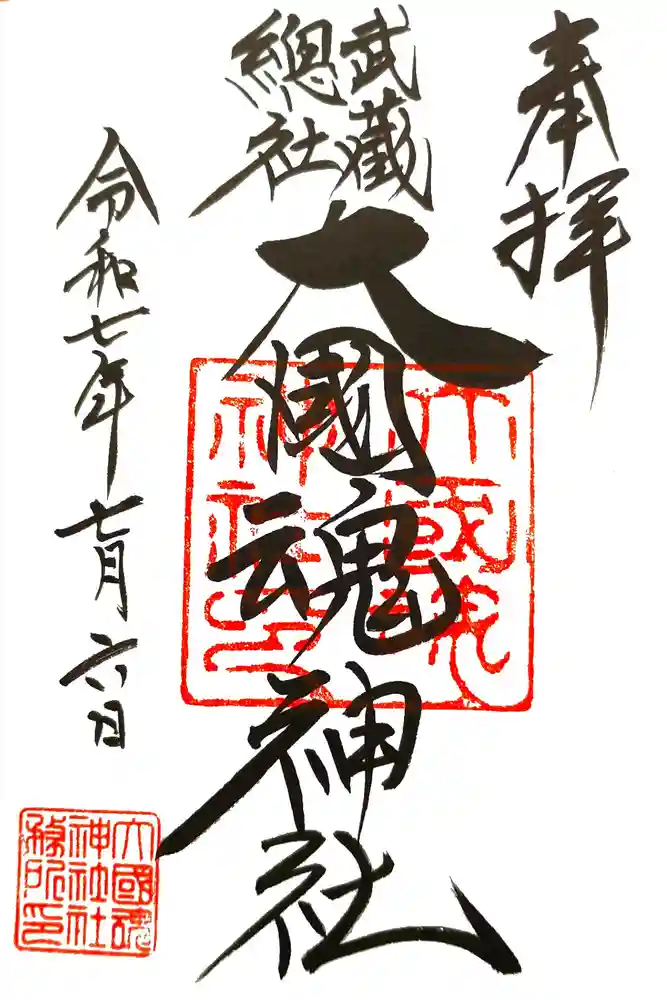 奉拝
武蔵
總社
大國魂神社
令和七年七月六日
大國魂
神社社
務所印